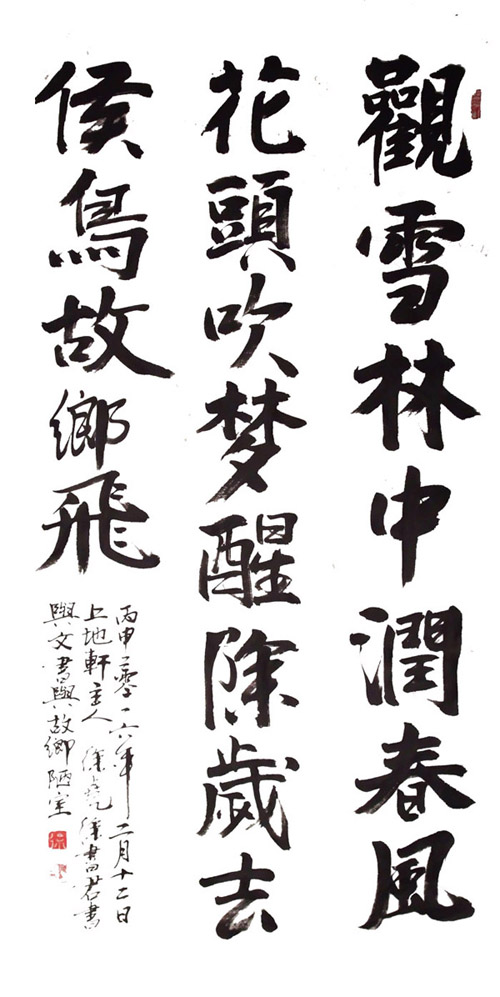 觀雪林中潤春風
花頭吹梦醒除歲去
侯鳥故鄉飛
丙申二零一六年二月十二日
上地軒主人徐 徐書君書
興文書與故鄉陋室